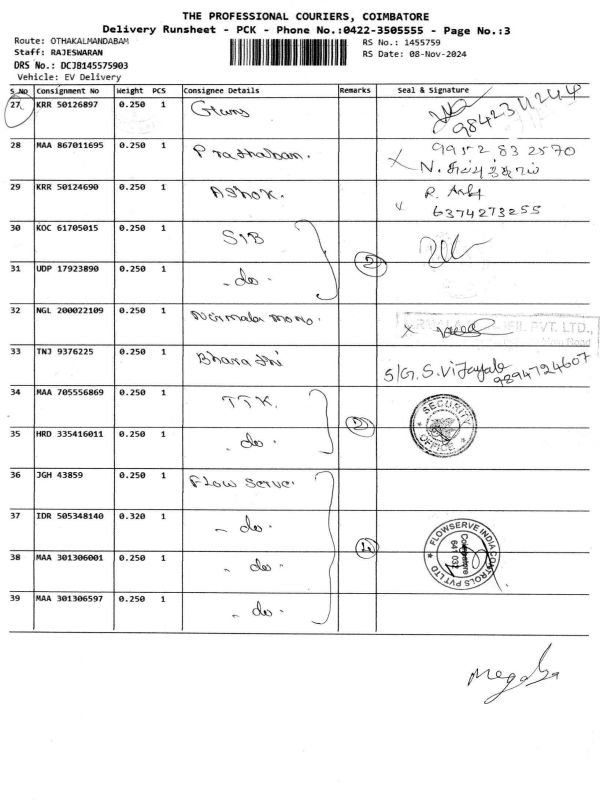 THE PROFESSIONAL COURIERS, COIMBATORE
Delivery Runsheet - PCK - Phone No.:0422-3505555 - Page No.:3
Route: OTHAKALMANDABAM RS No.: 1455759
Staff: RAJESWARAN RS Date: 08-Nov-2024
DRS No.: DCJB145575903
Vehicle: EV Delivery
S No Consignment No Weight PCS Consignee Details Remarks Seal & Signature
27 KRR 50126897 0.250 1
28 MAA 867011695 0.250 1 Prathaban. 9952 83 2570
29 KRR 50124690 0.250 1 Ashok. R.
6374273255
30 KOC 61705015 0.250 1 SIB
2
31 UDP 17923890 0.250 1 - do -
32 NGL 200022109 0.250 1 PVT. LTD.,
Main Road
33 TNJ 9376225 0.250 1 Bharathi S/G. S. Vijayala
9894724607
34 MAA 705556869 0.250 1 TTK. SECURITY OFFICE
2
35 HRD 335416011 0.250 1 - do -
36 JGH 43859 0.250 1 Flow Serve.
37 IDR 505348140 0.320 1 - do - FLOWSERVE INDIA CONTROLS PVT LTD
4 Coimbatore
641 032
38 MAA 301306001 0.250 1 - do -
39 MAA 301306597 0.250 1 - do -